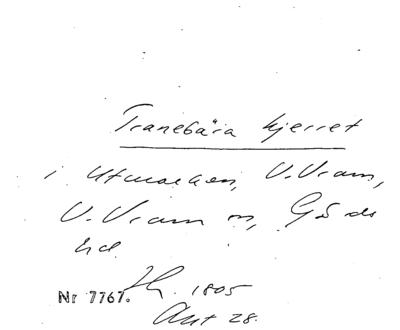 Tranebära kjerret
i Utmarken, V. Vram,
V. Vram sn, Gärds
hd.
Nr 7767. 1805
Akt 28.